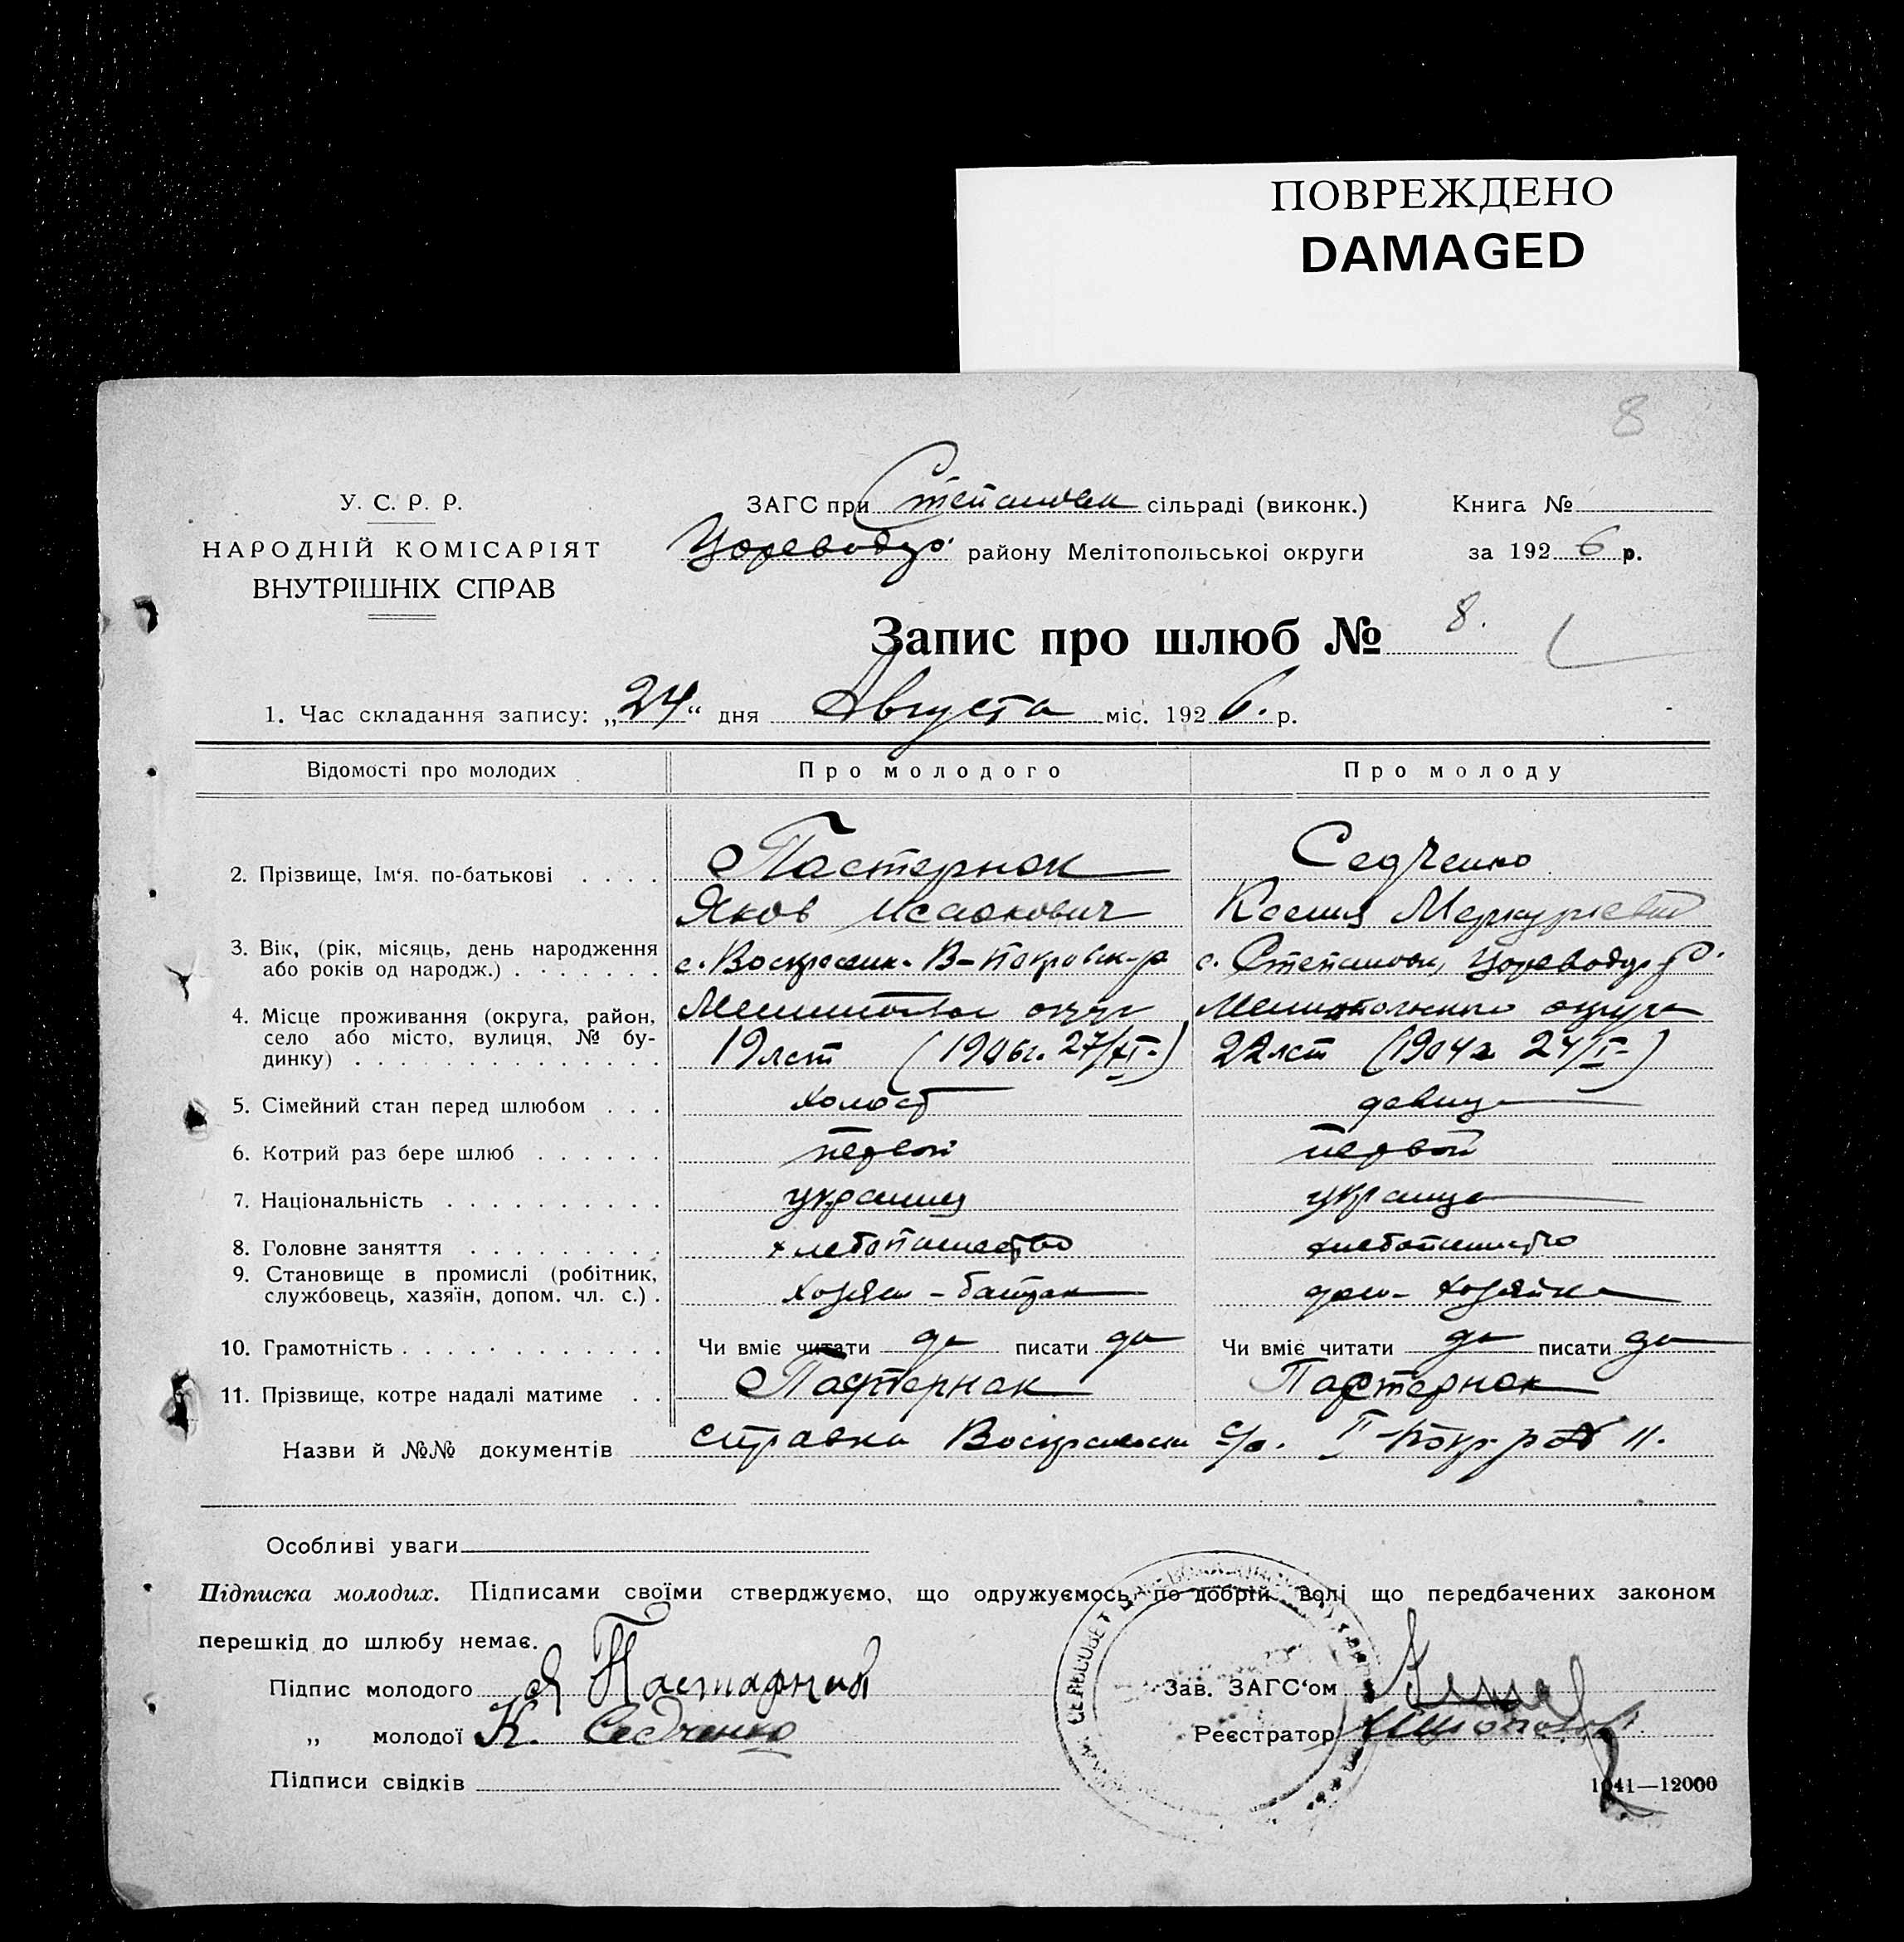 ПОВРЕЖДЕНО
DAMAGED
8
У. С. Р. Р.
НАРОДНІЙ КОМІСАРІЯТ
ВНУТРІШНІХ СПРАВ
ЗАГС при Степановск сільраді (виконк.) Книга №
Цареводар. району Мелітопольської округи за 1926 р.
Запис про шлюб № 8.
1. Час складання запису: „24“ дня Августа міс. 1926. р.
Відомості про молодих Про молодого Про молоду
2. Прізвище, Ім‘я. по-батькові Пастернак Седченко
Яков Исаакович Ксения Меркуриевна
3. Вік, (рік, місяць, день народження або років од народж.) с. Воскресенк. В-Покровск-р с. Степановк,
4. Місце проживання (округа, район, село або місто, вулиця, № будинку) округ Мелитопольского округа
19 лет (1906г. 27/XI-) 22 лет (1904г 24/I-)
5. Сімейний стан перед шлюбом холост девица
6. Котрий раз бере шлюб первой первой
7. Національність украинец украинца
8. Головне заняття хлебопашество хлебопашество
9. Становище в промислі (робітник, службовець, хазяїн, допом. чл. с.) Хозяин - батрак дом- хозяйка
10. Грамотність Чи вміє читати да писати да Чи вміє читати да писати да
11. Прізвище, котре надалі матиме Пастернак Пастернак
Назви й №№ документів справка Воскресенск с/с. II-Покр-р № 11.
Особливі уваги
Підписка молодих. Підписами своїми стверджуємо, що одружуємось по добрій волі що передбачених законом
перешкід до шлюбу немає.
Підпис молодого Я Пастарнак Зав. ЗАГС‘ом
„ молодої К. Седченко Реєстратор
Підписи свідків 1041—12000